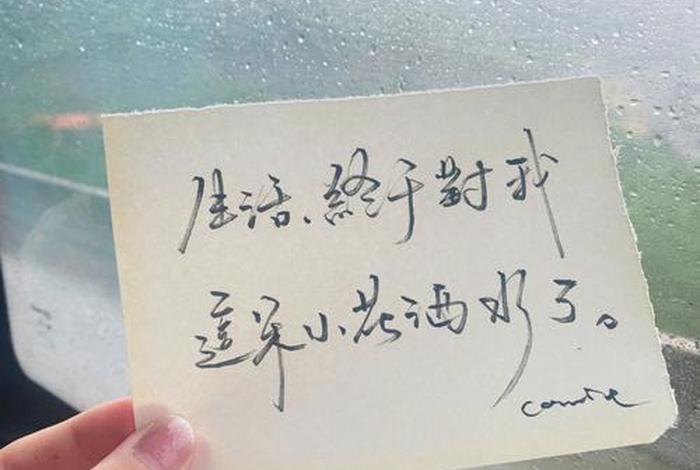 生活、終于對我
這朵小花洒水了。